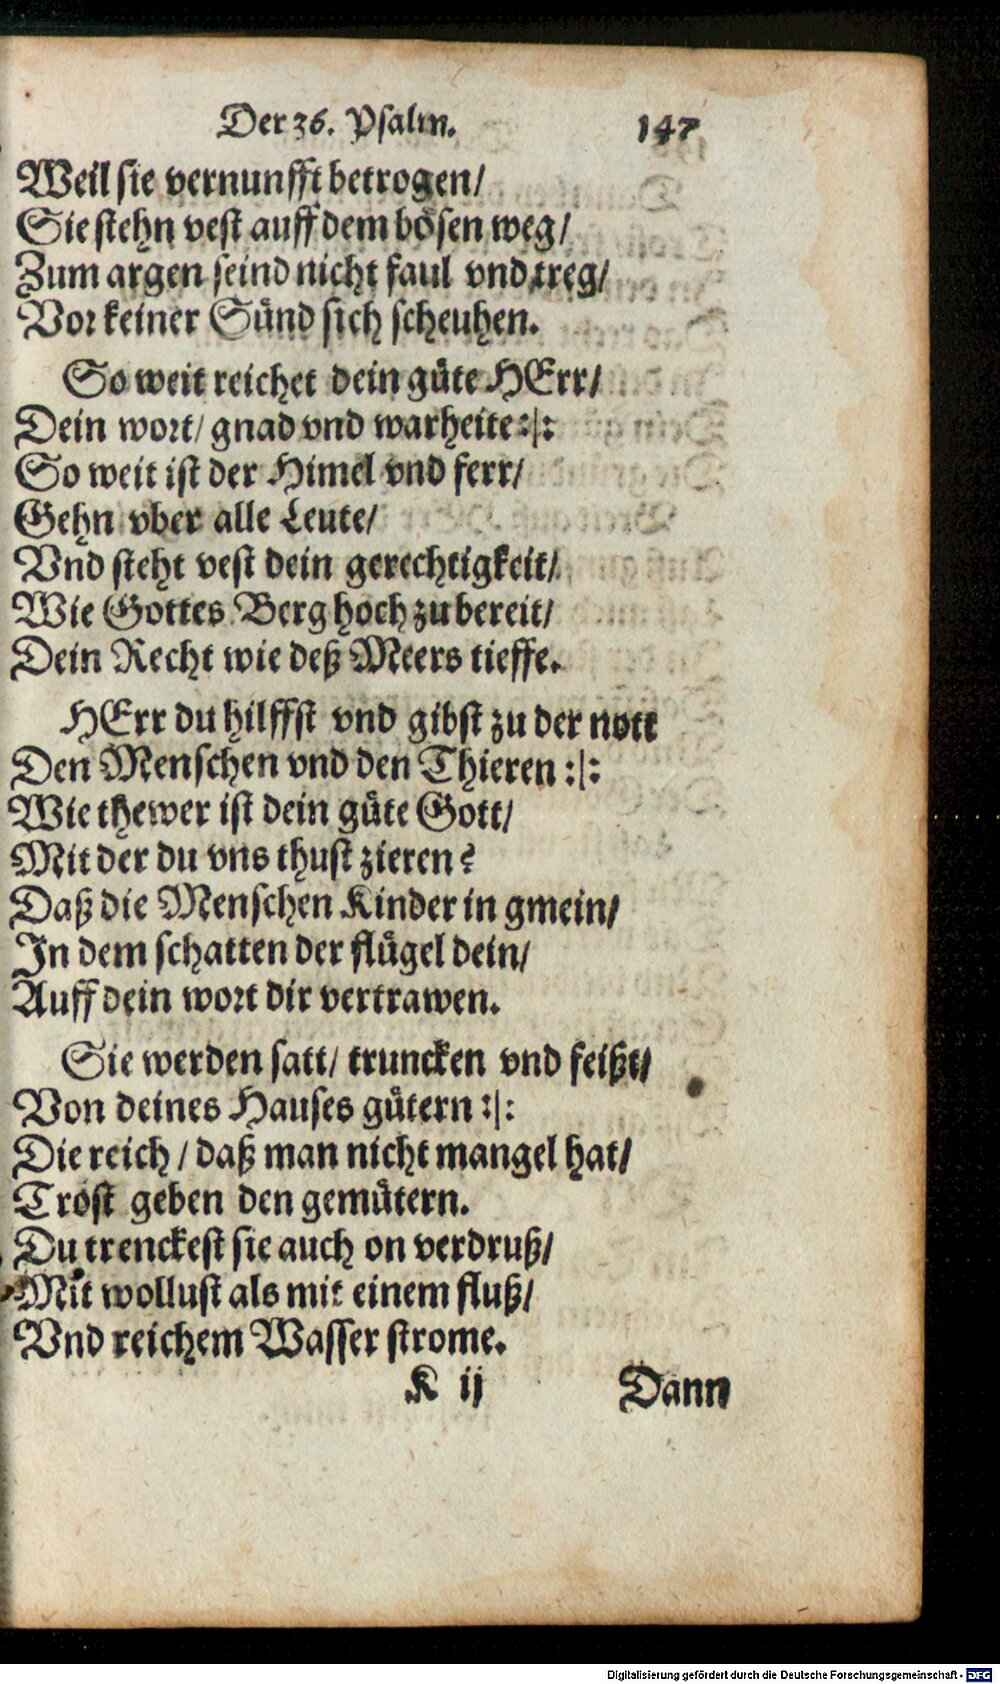 Der 36. Psalm. 147
Weil sie vernunfft betrogen/
Sie stehn vest auff dem bösen weg/
Zum argen seind nicht faul vnd treg/
Vor keiner Sünd sich scheuhen.
So weit reichet dein güte HErr/
Dein wort/ gnad vnd warheite :|:
So weit ist der Himel vnd ferr/
Gehn vber alle Leute/
Vnd steht vest dein gerechtigkeit/
Wie Gottes Berg hoch zubereit/
Dein Recht wie deß Meers tieffe.
HErr du hilffst vnd gibst zu der nott
Den Menschen vnd den Thieren :|:
Wie thewer ist dein güte Gott/
Mit der du vns thust zieren?
Daß die Menschen Kinder in gmein/
In dem schatten der flügel dein/
Auff dein wort dir vertrawen.
Sie werden satt/ truncken vnd feißt/
Von deines Hauses gütern :|:
Die reich / daß man nicht mangel hat/
Trost geben den gemütern.
Du trenckest sie auch on verdruß/
Mit wollust als mit einem fluß/
Vnd reichem Wasser strome.
K ij Dann
Digitalisierung gefördert durch die Deutsche Forschungsgemeinschaft - DFG